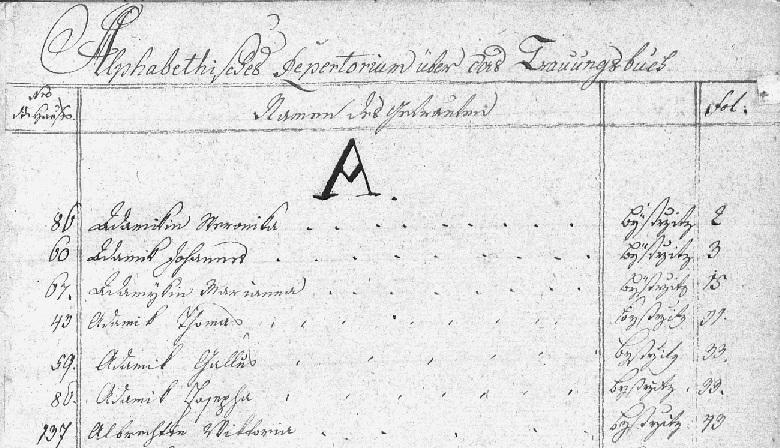 Alphabethisches Repertorium über das Trauungsbuch
Nro des Hauses
Namen des Getrauten
Fol.
A.
86 Adamikin Veronika Bystrzitz 2
60 Adamik Johannes Bystrzitz 3
67. Adamykin Marianna Bystrzitz 15
43 Adamik Thomas Bystrzitz
59. Adamik Gallus Bystrzitz 33.
86. Adamik Josepha Bystrzitz 33.
137 Albrechtin Viktoria Bystrzitz 43